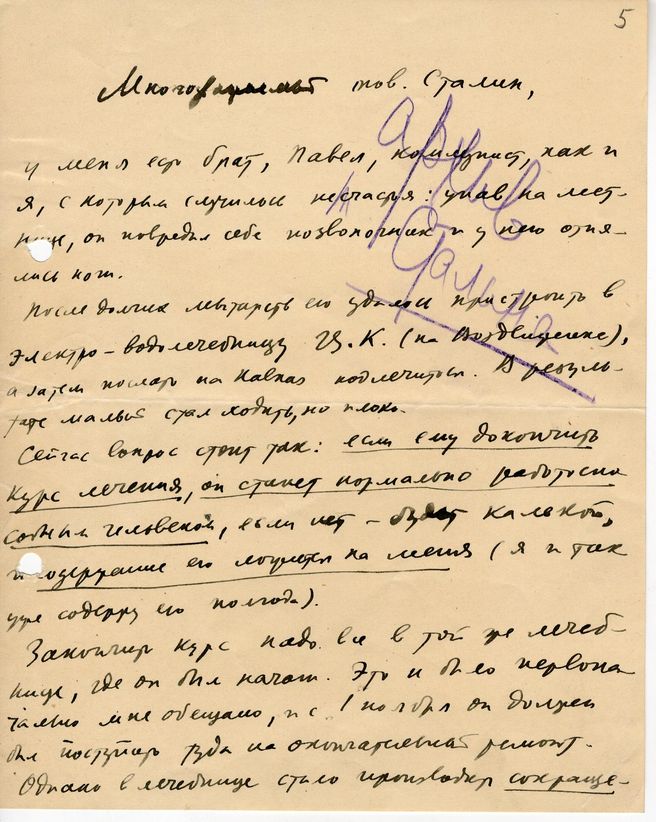 5
Многоуважаемый тов. Сталин,
у меня есть брат, Павел, коммунист, как и
я, с которым случилось несчастье: упав на лест-
нице, он повредил себе позвоночник и у него отня-
лись ноги.
После долгих мытарств его удалось пристроить в
электро-водолечебницу Ц.К. (на Воздвиженке),
а затем послать на Кавказ подлечиться. В резуль-
тате малый стал ходить, но плохо.
Сейчас вопрос стоит так: если ему докончить
курс лечения, он станет нормально работоспо
собным человеком, если нет – будет калекой,
и содержание его ложится на меня (я и так
уже содержу его полгода).
Закончить курс надо все в той же лечеб-
нице, где он был начат. Это и было первона
чально мне обещано, и с 1 ноября он должен
был поступить туда на окончательный ремонт.
Однако в лечебнице стало производить сокраще-
архив
т. Сталина